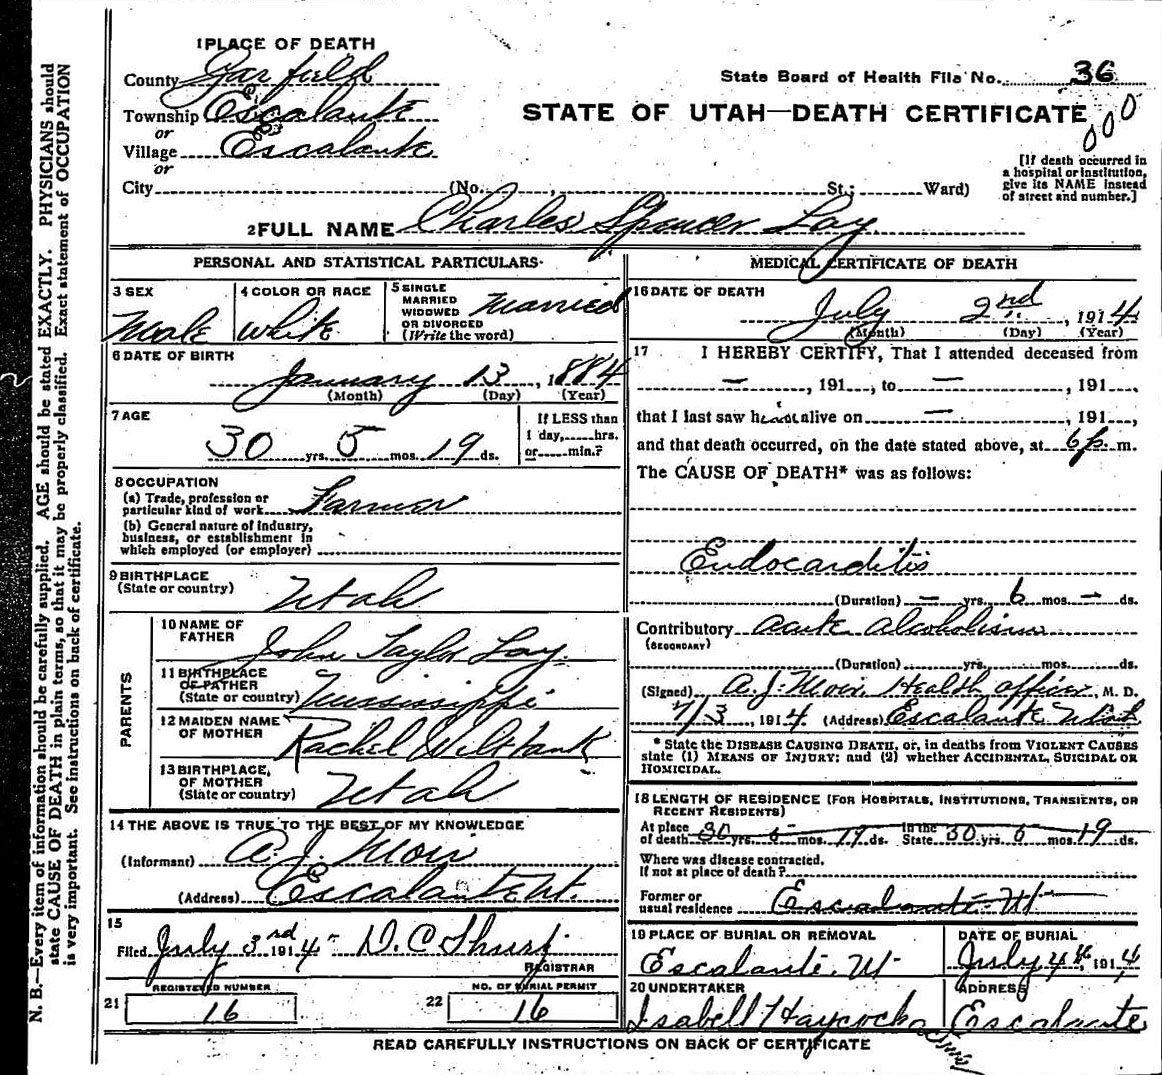 1 PLACE OF DEATH
County Garfield
Township Escalante
or
Village Escalante
or
City (No. , St.; Ward)
State Board of Health File No. 36
STATE OF UTAH—DEATH CERTIFICATE
000
[If death occurred in
a hospital or institution,
give its NAME instead
of street and number.]
2 FULL NAME Charles Spencer Lay
PERSONAL AND STATISTICAL PARTICULARS
3 SEX
Male
4 COLOR OR RACE
White
5 SINGLE
MARRIED
WIDOWED
OR DIVORCED
(Write the word)
Married
6 DATE OF BIRTH
January 13, 1884
(Month) (Day) (Year)
7 AGE
30 yrs. 5 mos. 19 ds.
If LESS than
1 day, hrs.
or min.?
8 OCCUPATION
(a) Trade, profession or
particular kind of work Farmer
(b) General nature of industry,
business, or establishment in
which employed (or employer)
9 BIRTHPLACE
(State or country) Utah
PARENTS
10 NAME OF
FATHER John Taylor Lay
11 BIRTHPLACE
OF FATHER
(State or country) Mississippi
12 MAIDEN NAME
OF MOTHER Rachel Wiltbank
13 BIRTHPLACE,
OF MOTHER
(State or country) Utah
14 THE ABOVE IS TRUE TO THE BEST OF MY KNOWLEDGE
(Informant) A. J. Moir
(Address) Escalante Ut.
15
Filed July 3rd 1914 D. C. Shurtz
REGISTRAR
REGISTERED NUMBER
21 16
NO. OF BURIAL PERMIT
22 16
MEDICAL CERTIFICATE OF DEATH
16 DATE OF DEATH
July 2nd, 1914
(Month) (Day) (Year)
17 I HEREBY CERTIFY, That I attended deceased from
— , 191 , to — , 191 ,
that I last saw him alive on — , 191 ,
and that death occurred, on the date stated above, at 6 p. m.
The CAUSE OF DEATH* was as follows:
Endocarditis
(Duration) — yrs. 6 mos. — ds.
Contributory acute alcoholism
(SECONDARY)
(Duration) yrs. mos. ds.
(Signed) A. J. Moir Health officer, M. D.
7/3, 1914 (Address) Escalante Utah
* State the DISEASE CAUSING DEATH, or, in deaths from VIOLENT CAUSES
state (1) MEANS OF INJURY; and (2) whether ACCIDENTAL, SUICIDAL OR
HOMICIDAL.
18 LENGTH OF RESIDENCE (FOR HOSPITALS, INSTITUTIONS, TRANSIENTS, OR
RECENT RESIDENTS)
At place of death 30 yrs. 5 mos. 19 ds. In the State 30 yrs. 5 mos. 19 ds.
Where was disease contracted,
If not at place of death?
Former or
usual residence Escalante Ut
19 PLACE OF BURIAL OR REMOVAL
Escalante, Ut
DATE OF BURIAL
July 4th, 1914
20 UNDERTAKER
Isabell Haycock
ADDRESS
Escalante
READ CAREFULLY INSTRUCTIONS ON BACK OF CERTIFICATE
N. B.—Every item of information should be carefully supplied. AGE should be stated EXACTLY. PHYSICIANS should
state CAUSE OF DEATH in plain terms, so that it may be properly classified. Exact statement of OCCUPATION
is very important. See instructions on back of certificate.